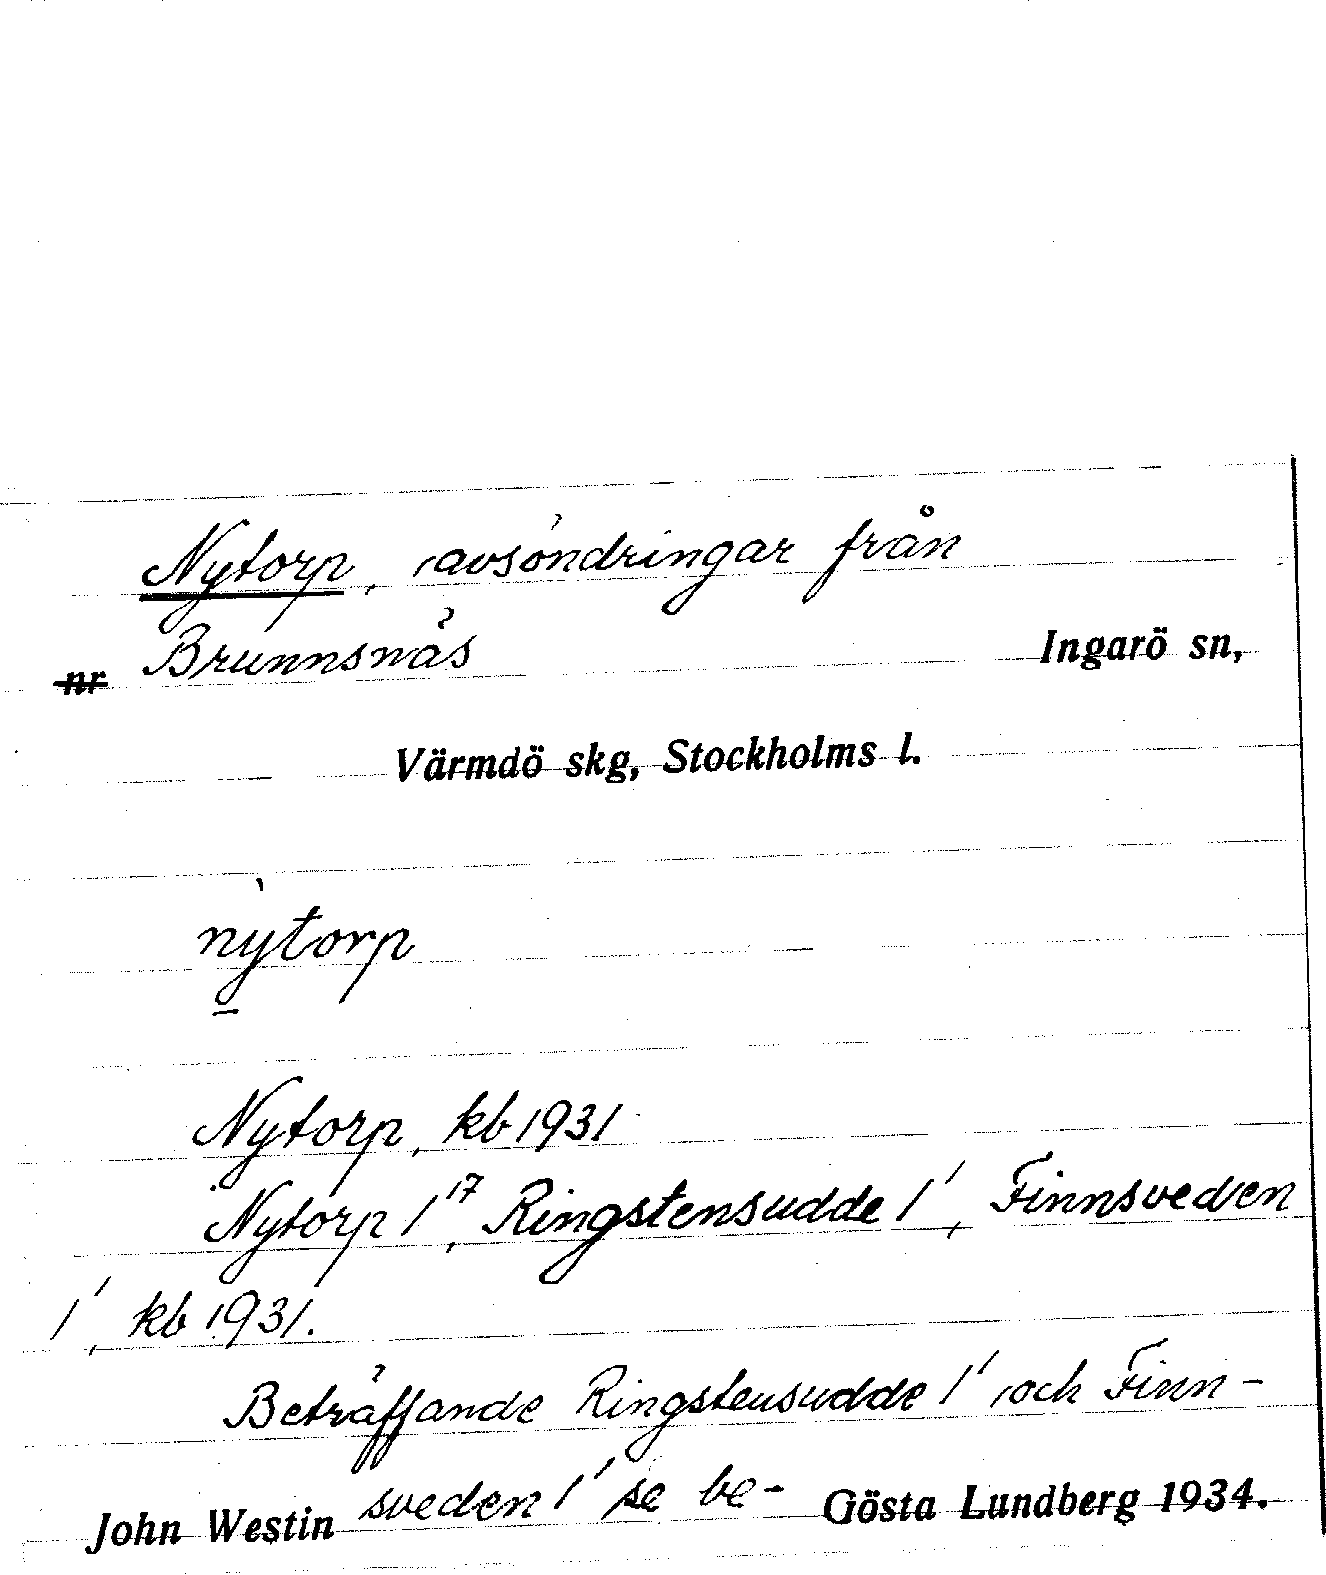 Nytorp, avsöndringar från
nr Brunnsnäs Ingarö sn,
Värmdö skg, Stockholms l.
nỳtorp
Nytorp, kb 1931
Nytorp 1¹⁷, Ringstensudde 1¹, Finnsveden
1¹, kb 1931.
Beträffande Ringstensudde 1¹ och Finn-
John Westin sveden 1¹ se be- Gösta Lundberg 1934.